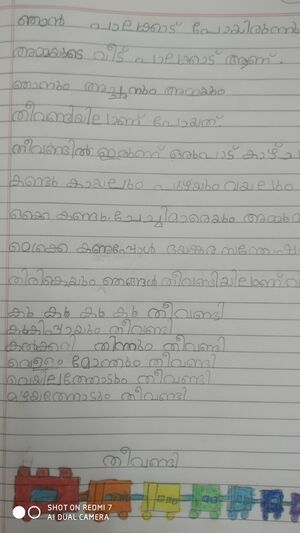 ഞാൻ പാലക്കാട് പോയിരുന്നു
അമ്മയുടെ വീട് പാലക്കാട് ആണ്.
ഞാനും അച്ഛനും അമ്മയും
തീവണ്ടിയിലാണ് പോയത്.
തീവണ്ടിയിൽ ഇരുന്ന് ഒരുപാട് കാഴ്ച
കണ്ടു കായലും പുഴയും വയലും
ഒക്കെ കണ്ടു. ചേച്ചിമാരെയും
ഒക്കെ കണ്ടപ്പോൾ ഭയങ്കര സന്തോഷ
തിരികെയും ഞങ്ങൾ തീവണ്ടിയിലാണ്
കൂ കൂ കൂ കൂ തീവണ്ടി
കൂകിപ്പായും തീവണ്ടി
കൽക്കരി തിന്നും തീവണ്ടി
വെള്ളം മോന്തും തീവണ്ടി
വെയിലത്തോടും തീവണ്ടി
മഴയത്തോടും തീവണ്ടി
തീവണ്ടി
SHOT ON REDMI 7
AI DUAL CAMERA